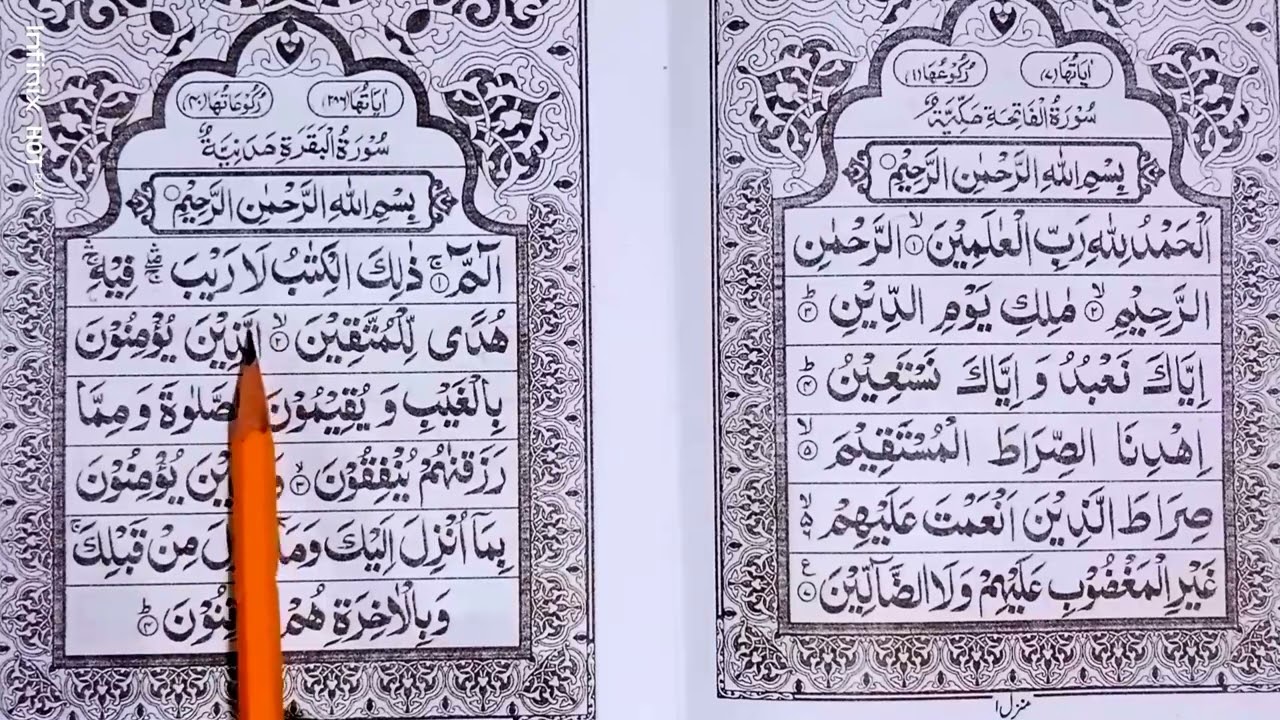 اٰيَاتُهَا (٧) رُكُوْعُهَا (١)
سُوْرَةُ الْفَاتِحَةِ مَكِّيَّةٌ
بِسْمِ اللّٰهِ الرَّحْمٰنِ الرَّحِيْمِ
اَلْحَمْدُ لِلّٰهِ رَبِّ الْعٰلَمِيْنَ ۙ﴿١﴾ الرَّحْمٰنِ
الرَّحِيْمِ ۙ﴿٢﴾ مٰلِكِ يَوْمِ الدِّيْنِ ؕ﴿٣﴾
اِيَّاكَ نَعْبُدُ وَ اِيَّاكَ نَسْتَعِيْنُ ؕ﴿٤﴾
اِهْدِنَا الصِّرَاطَ الْمُسْتَقِيْمَ ۙ﴿٥﴾
صِرَاطَ الَّذِيْنَ اَنْعَمْتَ عَلَيْهِمْ
غَيْرِ الْمَغْضُوْبِ عَلَيْهِمْ وَلَا الضَّآلِّيْنَ ﴿٧﴾
منزل ١
اٰيَاتُهَا (٢٨٦) رُكُوْعَاتُهَا (٤٠)
سُوْرَةُ الْبَقَرَةِ مَدَنِيَّةٌ
بِسْمِ اللّٰهِ الرَّحْمٰنِ الرَّحِيْمِ
الٓمّٓ ۚ﴿١﴾ ذٰلِكَ الْكِتٰبُ لَا رَيْبَ ۛ فِيْهِ ۛ
هُدًى لِّلْمُتَّقِيْنَ ۙ﴿٢﴾ الَّذِيْنَ يُؤْمِنُوْنَ
بِالْغَيْبِ وَ يُقِيْمُوْنَ الصَّلٰوةَ وَ مِمَّا
رَزَقْنٰهُمْ يُنْفِقُوْنَ ۙ﴿٣﴾ يُؤْمِنُوْنَ
بِمَآ اُنْزِلَ اِلَيْكَ وَمَآ مِنْ قَبْلِكَ ۚ
وَبِالْاٰخِرَةِ هُمْ ؕ﴿٤﴾
Infinix HOT